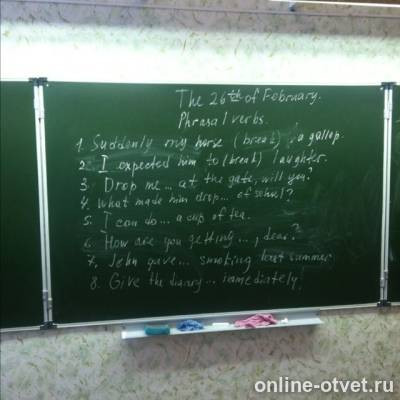 The 26th of February.
Phrasal verbs.
1. Suddenly my horse (break) ... a gallop.
2. I expected him to (break) laughter.
3. Drop me... at the gate, will you?
4. What made him drop... of school?
5. I can do... a cup of tea.
6. How are you getting..., dear?
7. John gave... smoking last summer.
8. Give the diary... immediately!
online-otvet.ru